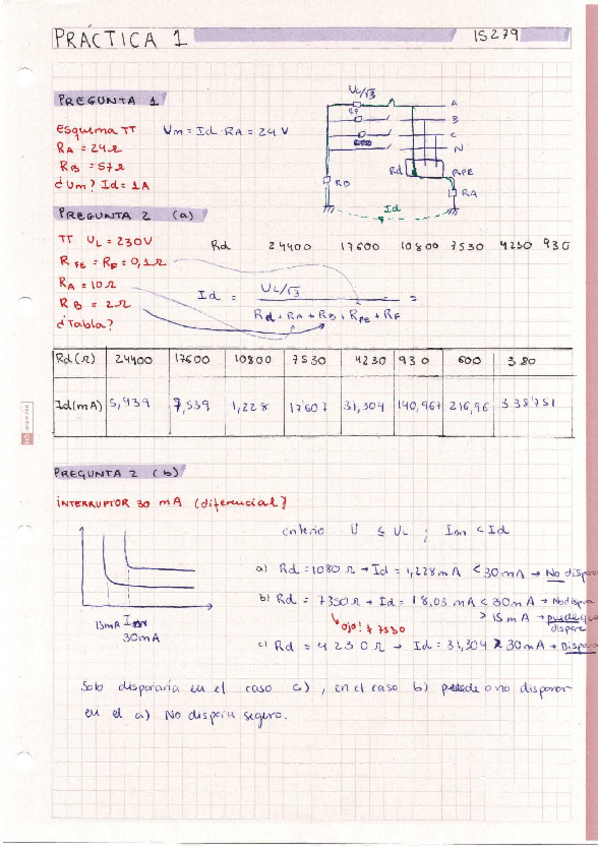 PRÁCTICA 1
IS279
PREGUNTA 1
Esquema TT Um = Id · RA = 24 V
RA = 24Ω
RB = 57Ω
¿Um? Id = 1A
UL/√3
RF
A
B
C
N
Rd
RPE
RB
RA
Id
PREGUNTA 2 (a)
TT UL = 230V
RPE = RF = 0,1Ω
RA = 10Ω
RB = 2Ω
¿Tabla?
Rd 24400 17600 10800 7530 4230 930
Id = UL/√3 / Rd + RA + RB + RPE + RF =
Rd (Ω) 24400 17600 10800 7530 4230 930 600 380
Id (mA) 5,439 7,539 1,228 17'607 31,304 140,967 216,96 338'751
PREGUNTA 2 (b)
INTERRUPTOR 30 mA (diferencial)
criterio U ≤ UL ; IΔN < Id
a) Rd = 1080 Ω → Id = 1,228 mA < 30 mA → No dispara
b) Rd = 7350 Ω → Id = 18,03 mA < 30 mA → No dispara
> 15 mA → puede que
dispare
ojo! 7530
c) Rd = 4230 Ω → Id = 31,304 > 30 mA → Dispara
15mA IΔN
30mA
Solo dispararía en el caso c), en el caso b) puede o no disparar
en el a) No dispara seguro.